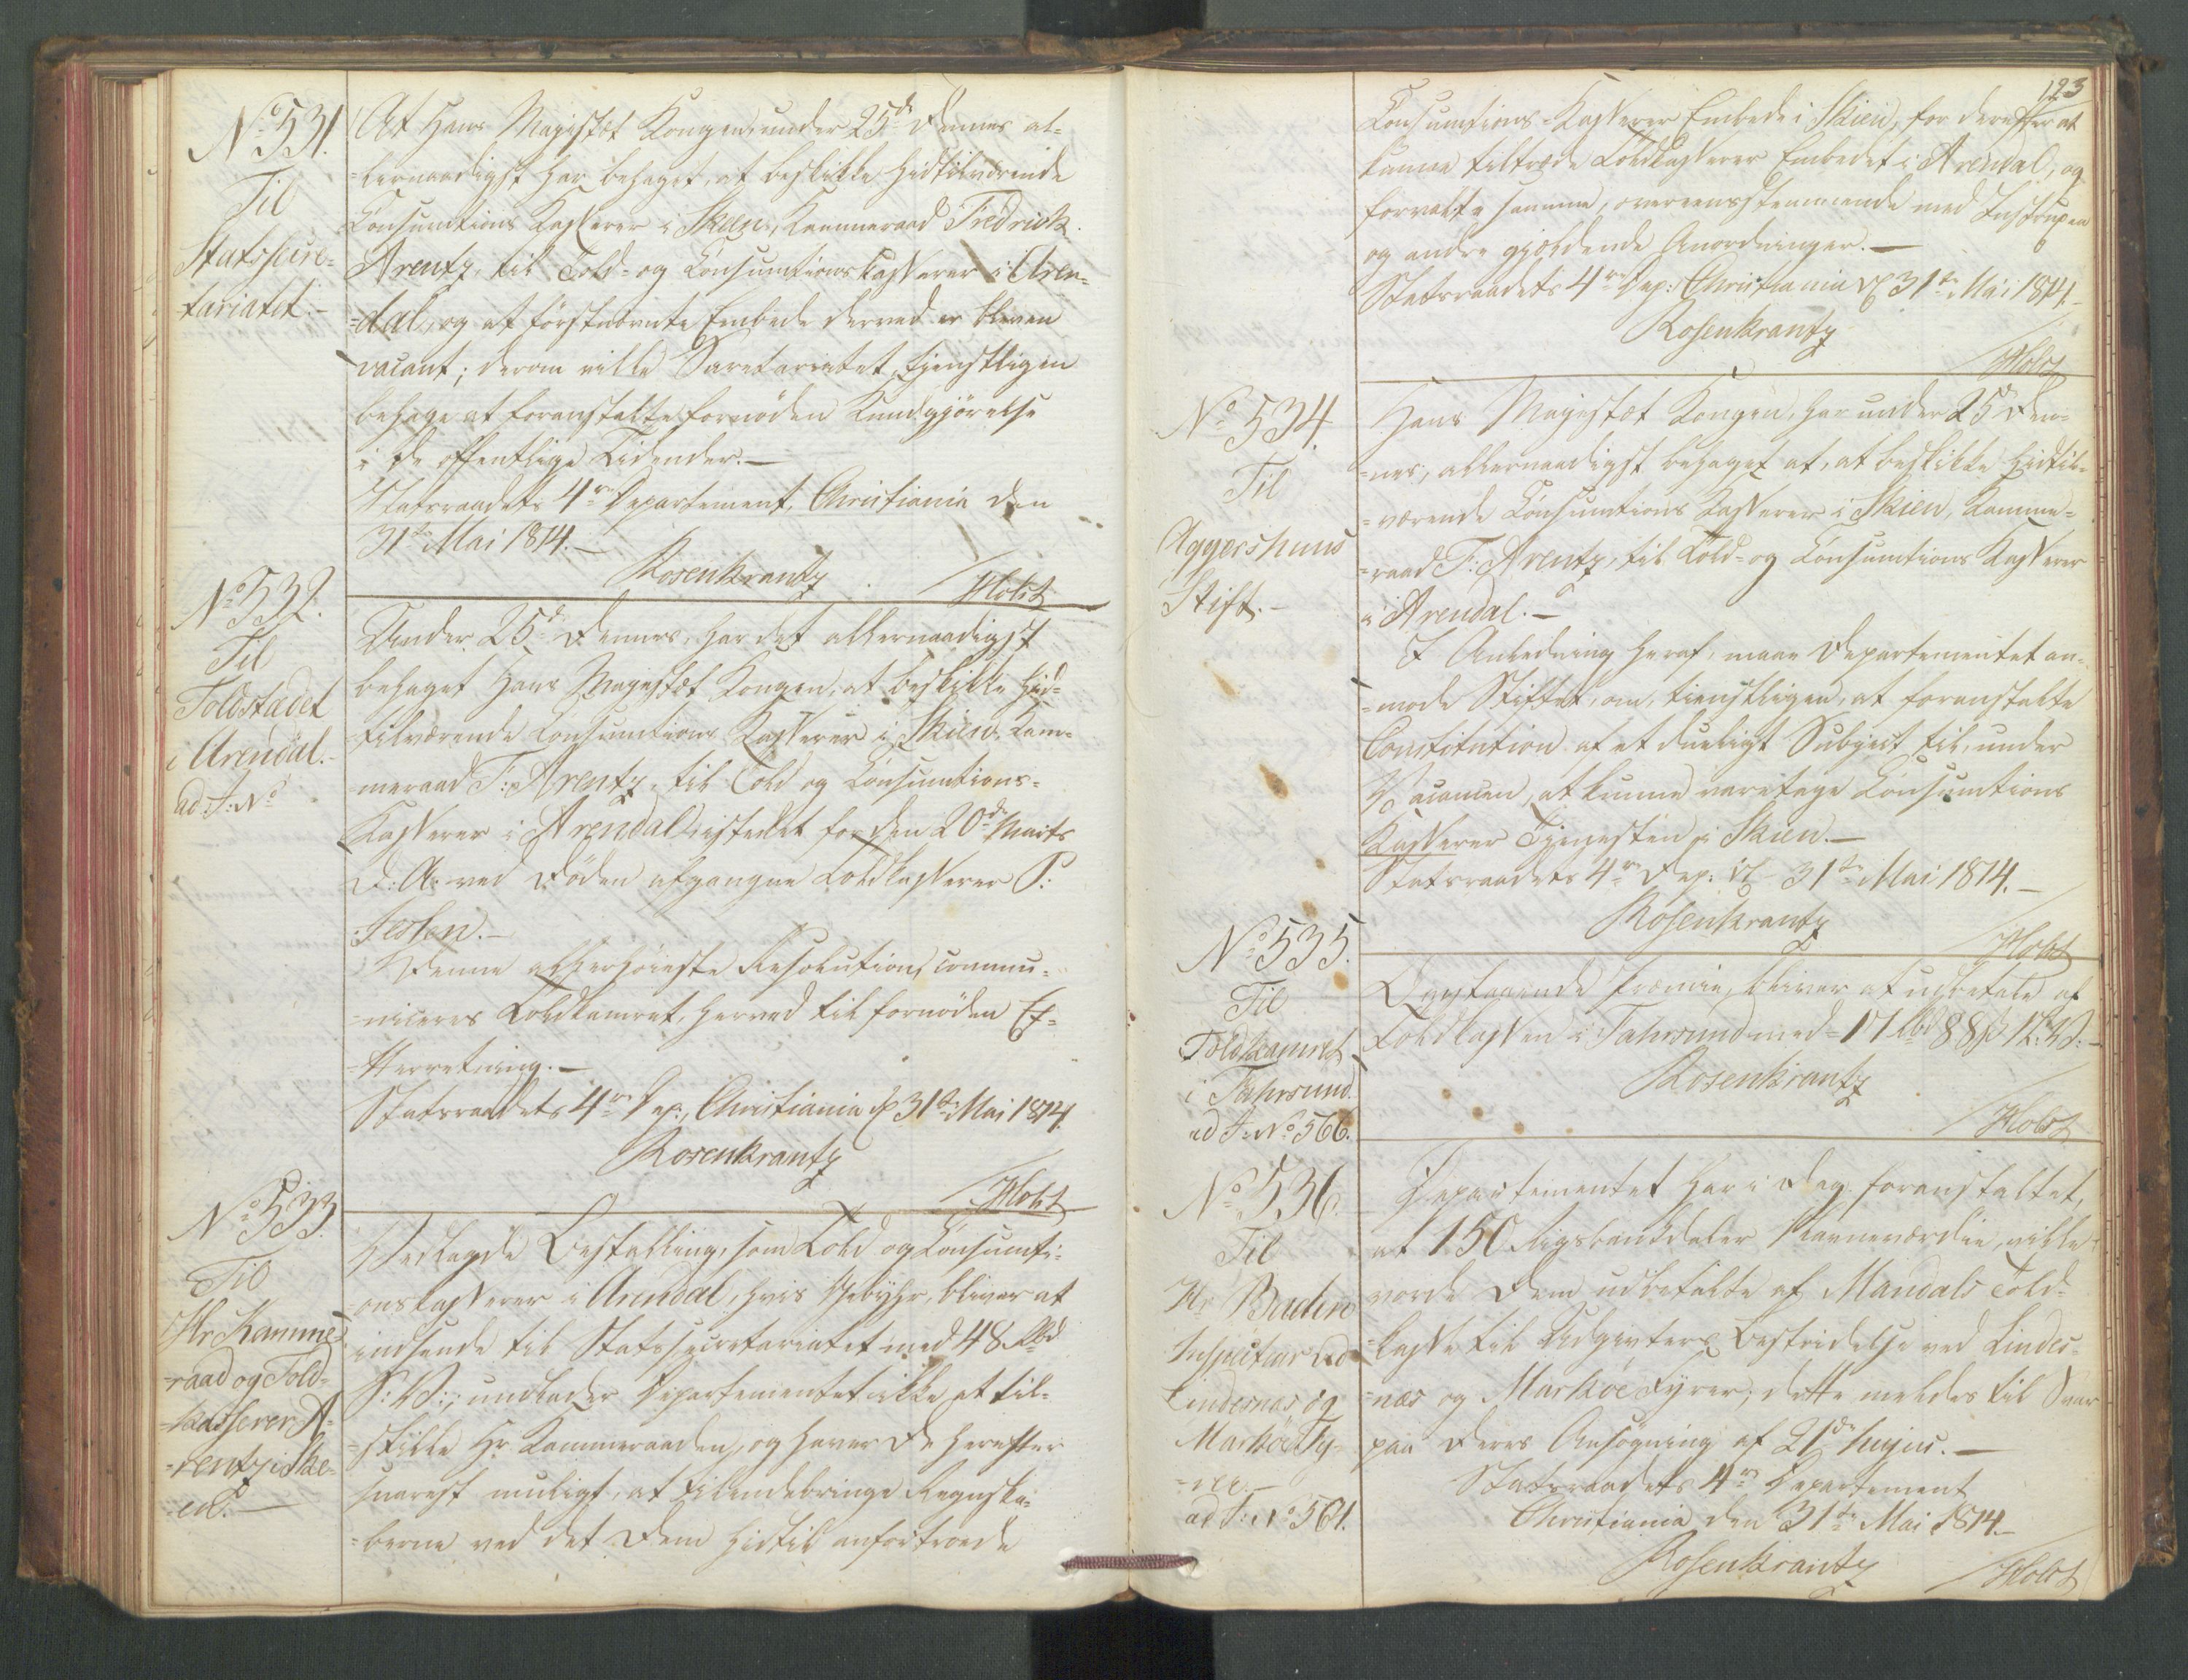 No 531.
Til
Statssecre-
tariatet.-
At Hans Majestæt Kongen, under 25de dennes al-
-lernaadigst har behaget, at beskikke hidtilværende
Consumtions Kasserer i Skien, Kammeraad Fredrick
Arentz, til Told- og Consumtionskasserer i Aren-
-dal, og at förstnævnte Embede derved er bleven
vacant; derom ville Secretariatet tjenstligen
behage at foranstalte fornöden Kundgjörelse
i de offentlige Tidender.-
Statsraadets 4re Departement, Christiania den
31te Mai 1814.-
Rosenkrantz
/Holst
No 532.
Til
Toldstædet
i Arendal.-
ad J: No
Under 25de dennes, har det allernaadigst
behaget Hans Majestæt Kongen, at beskikke hid-
tilværende Consumtions Kasserer i Skien, Kam-
meraad F: Arentz, til Told og Consumtions-
Kasserer i Arendal istedet for den 20de Marts
d: A: ved Döden afgangne Toldkasserer P:
Jessen.-
Denne allerhöieste Resolution, commu-
-niceres Toldkamret, herved til fornöden Ef-
-terretning.-
Statsraadets 4re Dep:, Christiania d 31te Mai 1814.
Rosenkrantz
/Holst
No 533.
Til
Hr Kamme-
-raad og Told-
-kasserer A-
-rentz i Ski-
-en.-
Vedlagde Bestalling, som Told og Consumti-
-onskasserer i Arendal, hvis Gebyhr, bliver at
indsende til Statssecretariatet med 48 Rbd
S: V:; undlader Departementet ikke at til-
-stille Hr Kammeraaden, og haver De herefter
snarest muligt, at tilendebringe Regnska-
-berne ved det Dem hidtil anfortroede
123
Consumtions-Kasserer Embede i Skien, for derefter at
kunne tiltræde Toldkasserer Embedet i Arendal, og
forvalte samme, overeensstemmende med Instruxen
og andre gjældende Anordninger.-
Statsraadets 4re Dep: Christiania d 31te Mai 1814.-
Rosenkrantz
/Holst
No 534.
Til
Aggershuus
Stift.-
Hans Majestæt Kongen, har under 25de den-
-nes, allernaadigst behaget at, at beskikke hidtil-
-værende Consumtions Kasserer i Skien, Kamme-
-raad F: Arentz, til Told- og Consumtions Kasserer
i Arendal.-
I Anledning heraf, maae Departementet an-
-mode Stiftet, om, tienstligen, at foranstalte
Constitution af et dueligt Subject til, under
Vacancen, at kunne varetage Consumtions
Kasserer Tjenesten i Skien.-
Statsraadets 4re Dep: d 31te Mai 1814.-
Rosenkrantz
/Holst
No 535.
Til
Toldkamret
i Fahrsund.
ad J: No 566.
Ovenstaaende Præmie, bliver at udbetale af
Toldkassen i Fahrsund med 17 Rbd 88 s N: V:-
Rosenkrantz
/Holst
No 536.
Til
Hr Buden
Inspecteur ved
Lindesnæs og
Marköe Fy-
-rer.-
ad J: No 561.
Departementet har i Dag foranstaltet,
at 150 Rigsbankdaler Navneværdie, ville
vorde Dem udbetalte af Mandals Told-
-kasse til Udgivters Bestridelse ved Lindes-
-næs og Marköe Fyrer; dette meldes til Svar
paa Deres Ansögning af 21de hujus.-
Statsraadets 4re Departement
Christiania den 31te Mai 1814.-
Rosenkrantz
/Holst